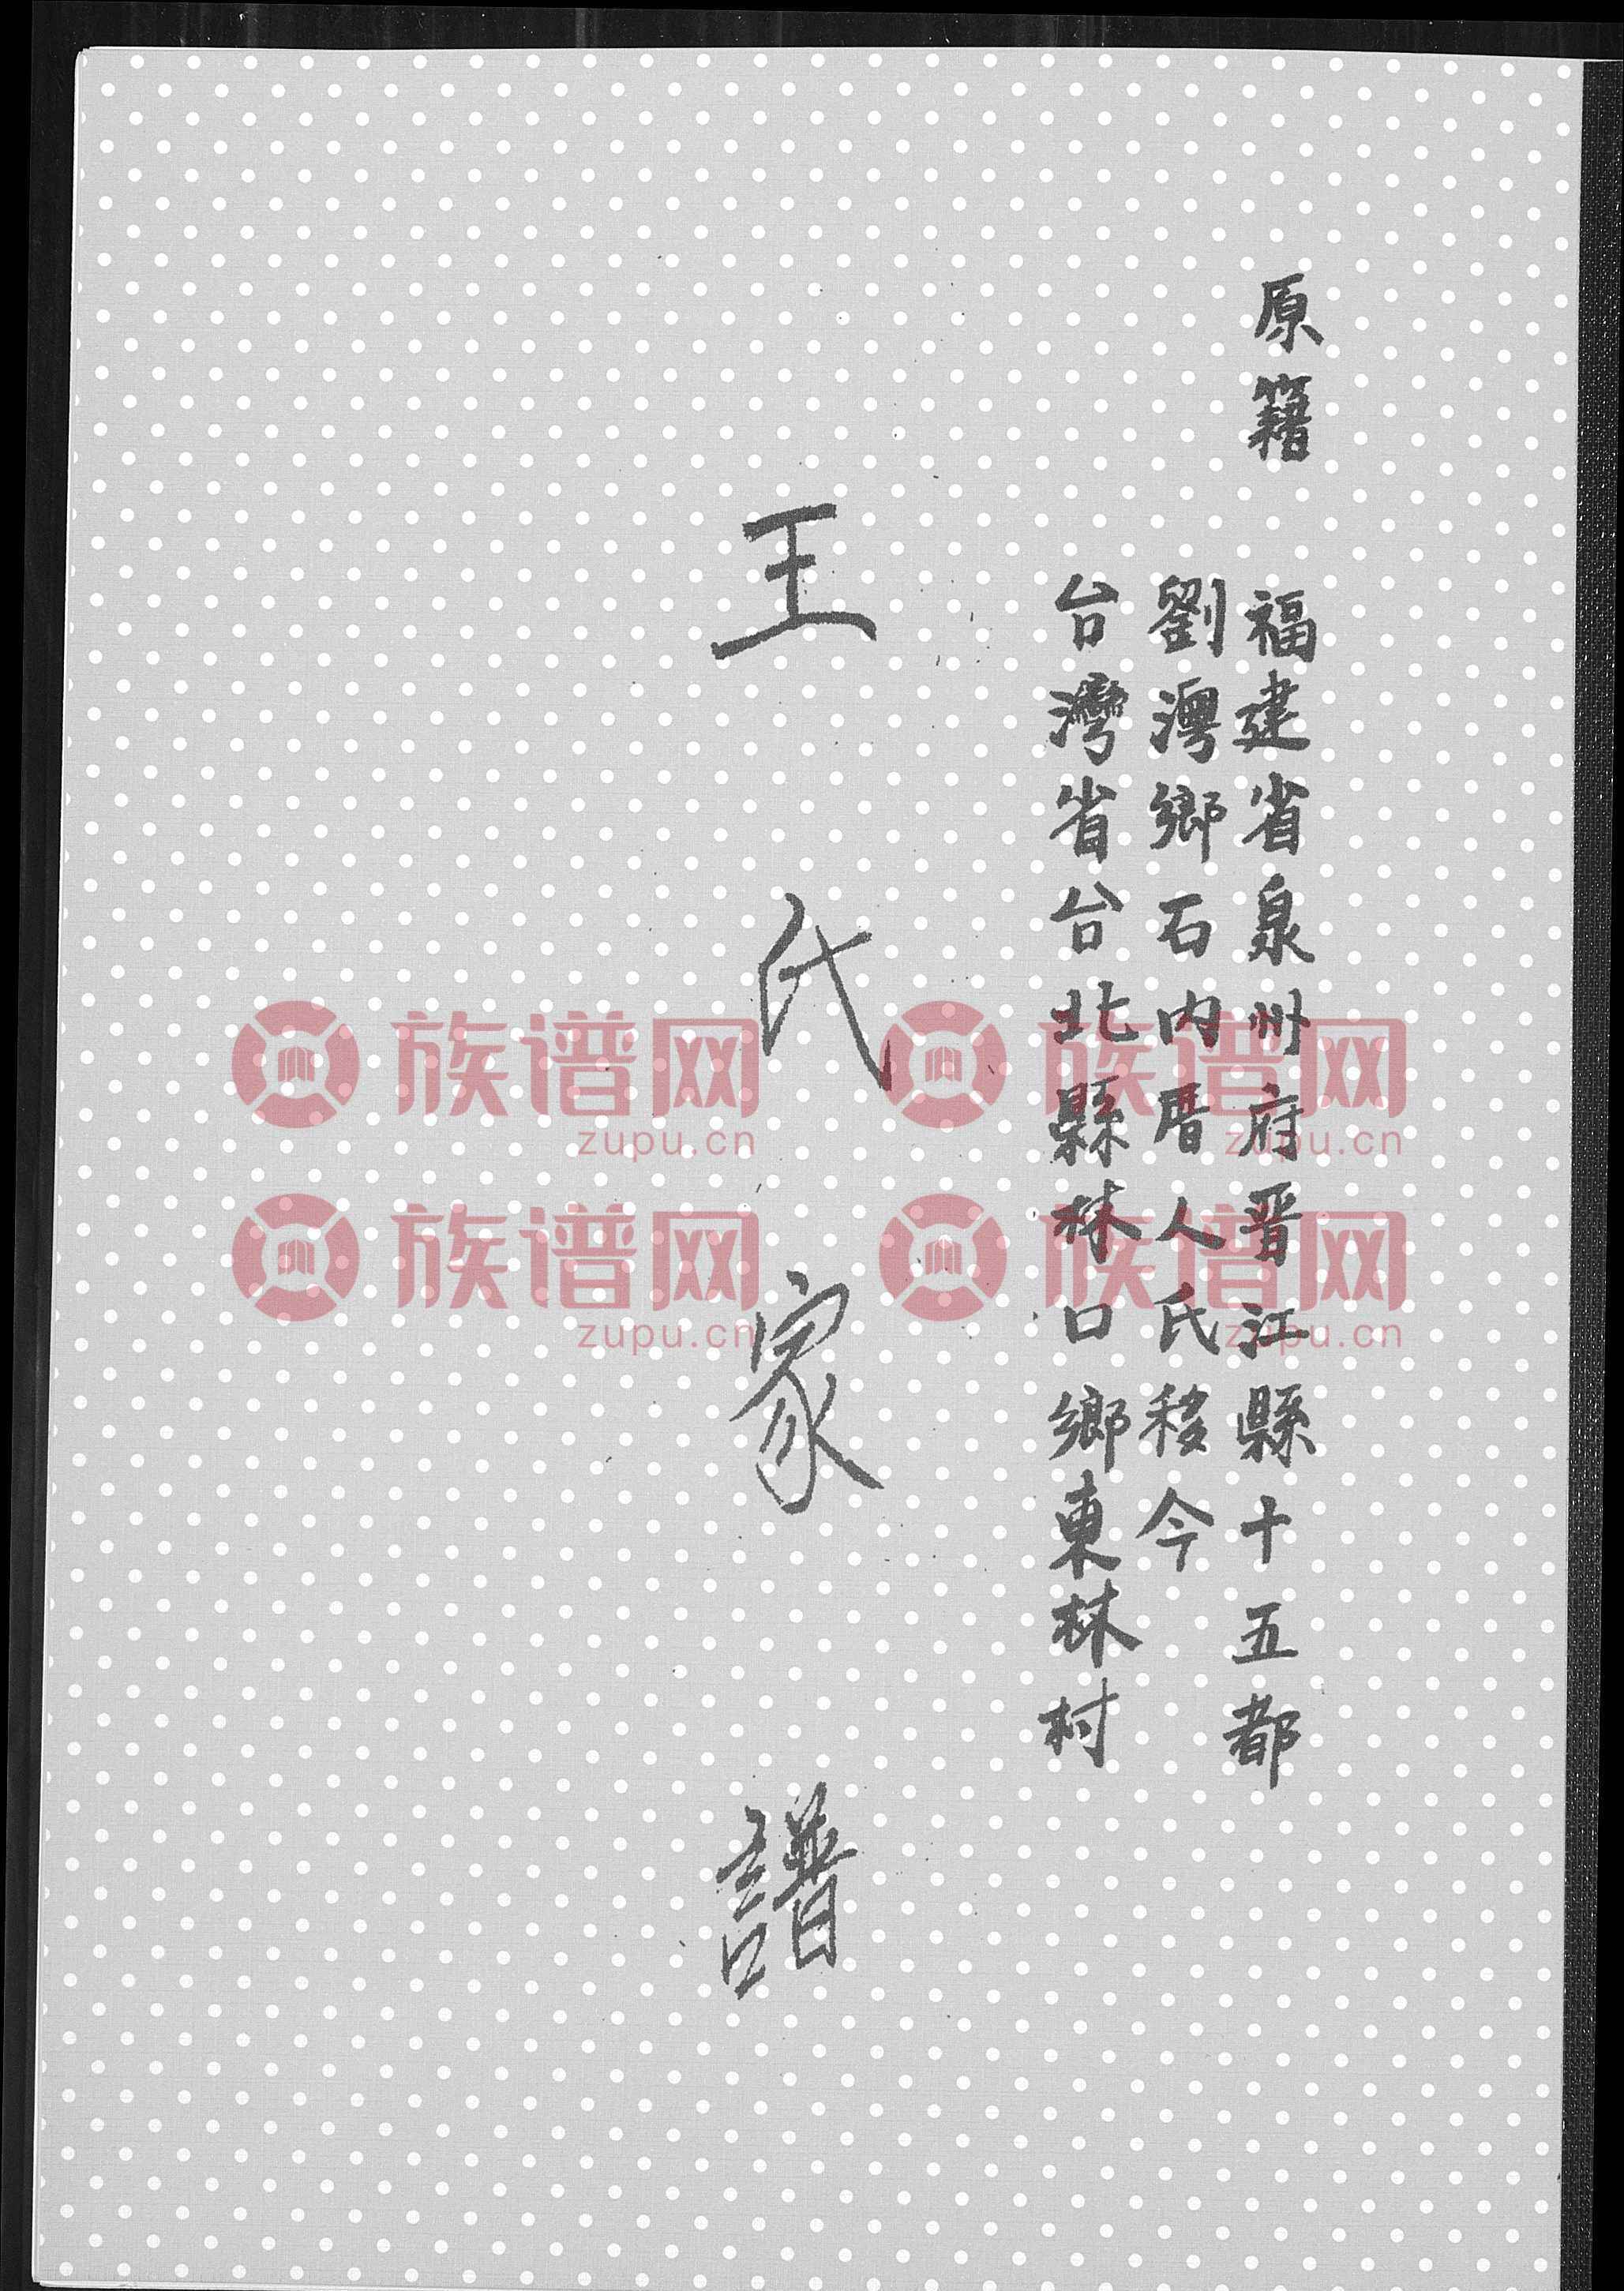 原籍 福建省泉州府晋江縣十五都
劉澚鄉石内厝人氏移今
台灣省台北縣林口鄉東林村
王氏家譜
族谱网 族谱网
zupu.cn zupu.cn
族谱网 族谱网
zupu.cn zupu.cn